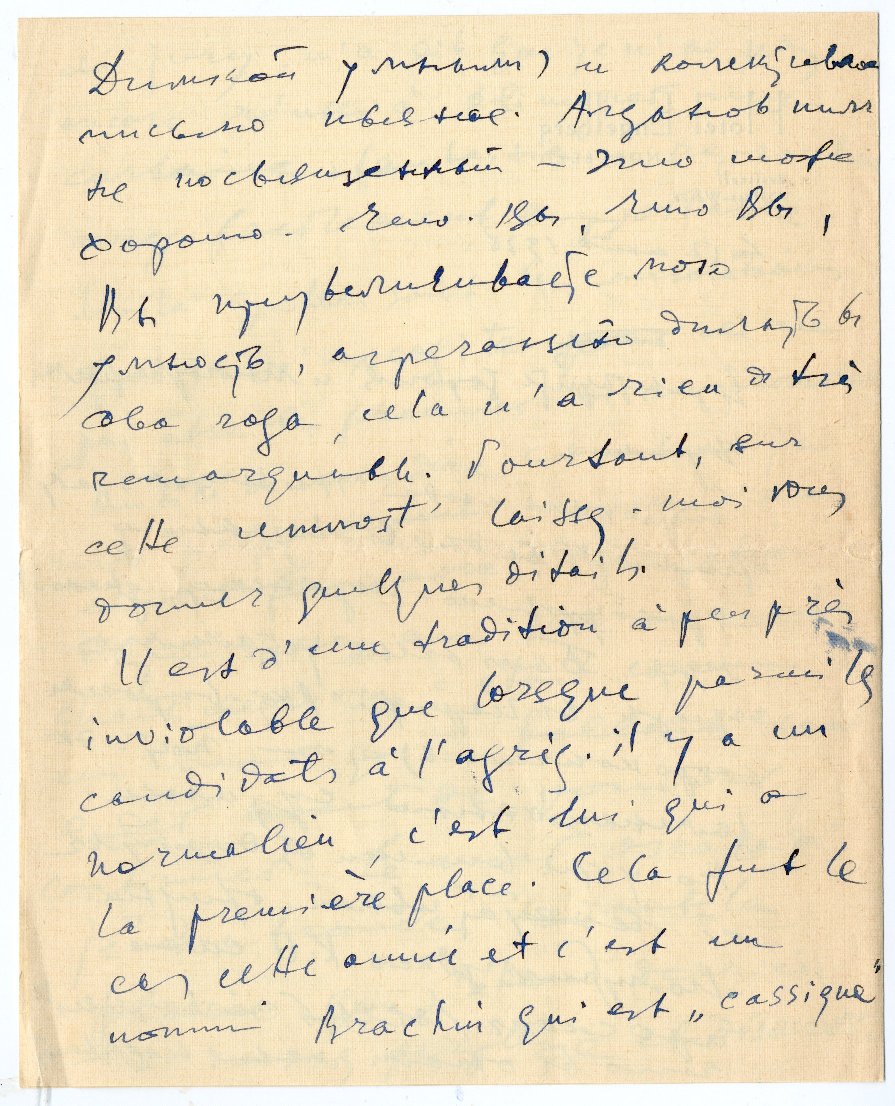 Димкой умным) и
письмо Алданов
не посвященный – это тоже
хорошо. Вы, что Вы,
Вы приувеличиваете мою
умность,
года, cela n'a rien de très
remarquable. Pourtant, sur
cette laissez-moi vous
donner quelques détails.
Il est d'une tradition à peu près
inviolable que lorsque parmi les
candidats à l'agrég. il y a un
normalien, c'est lui qui a
la première place. Cela fut le
cas cette année et c'est un
nommé Brachin qui est „cassique"